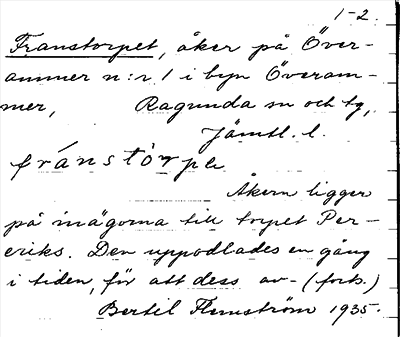 1-2.
Franstorpet, åker på Över-
ammer n:r 1 i byn Överam-
mer, Ragunda sn och tg,
Jämtl. l.
fránstòrpe
Åkern ligger
på inägorna till torpet Per-
eriks. Den uppodlades en gång
i tiden, för att dess av- (forts.)
Bertil Flemström 1935.